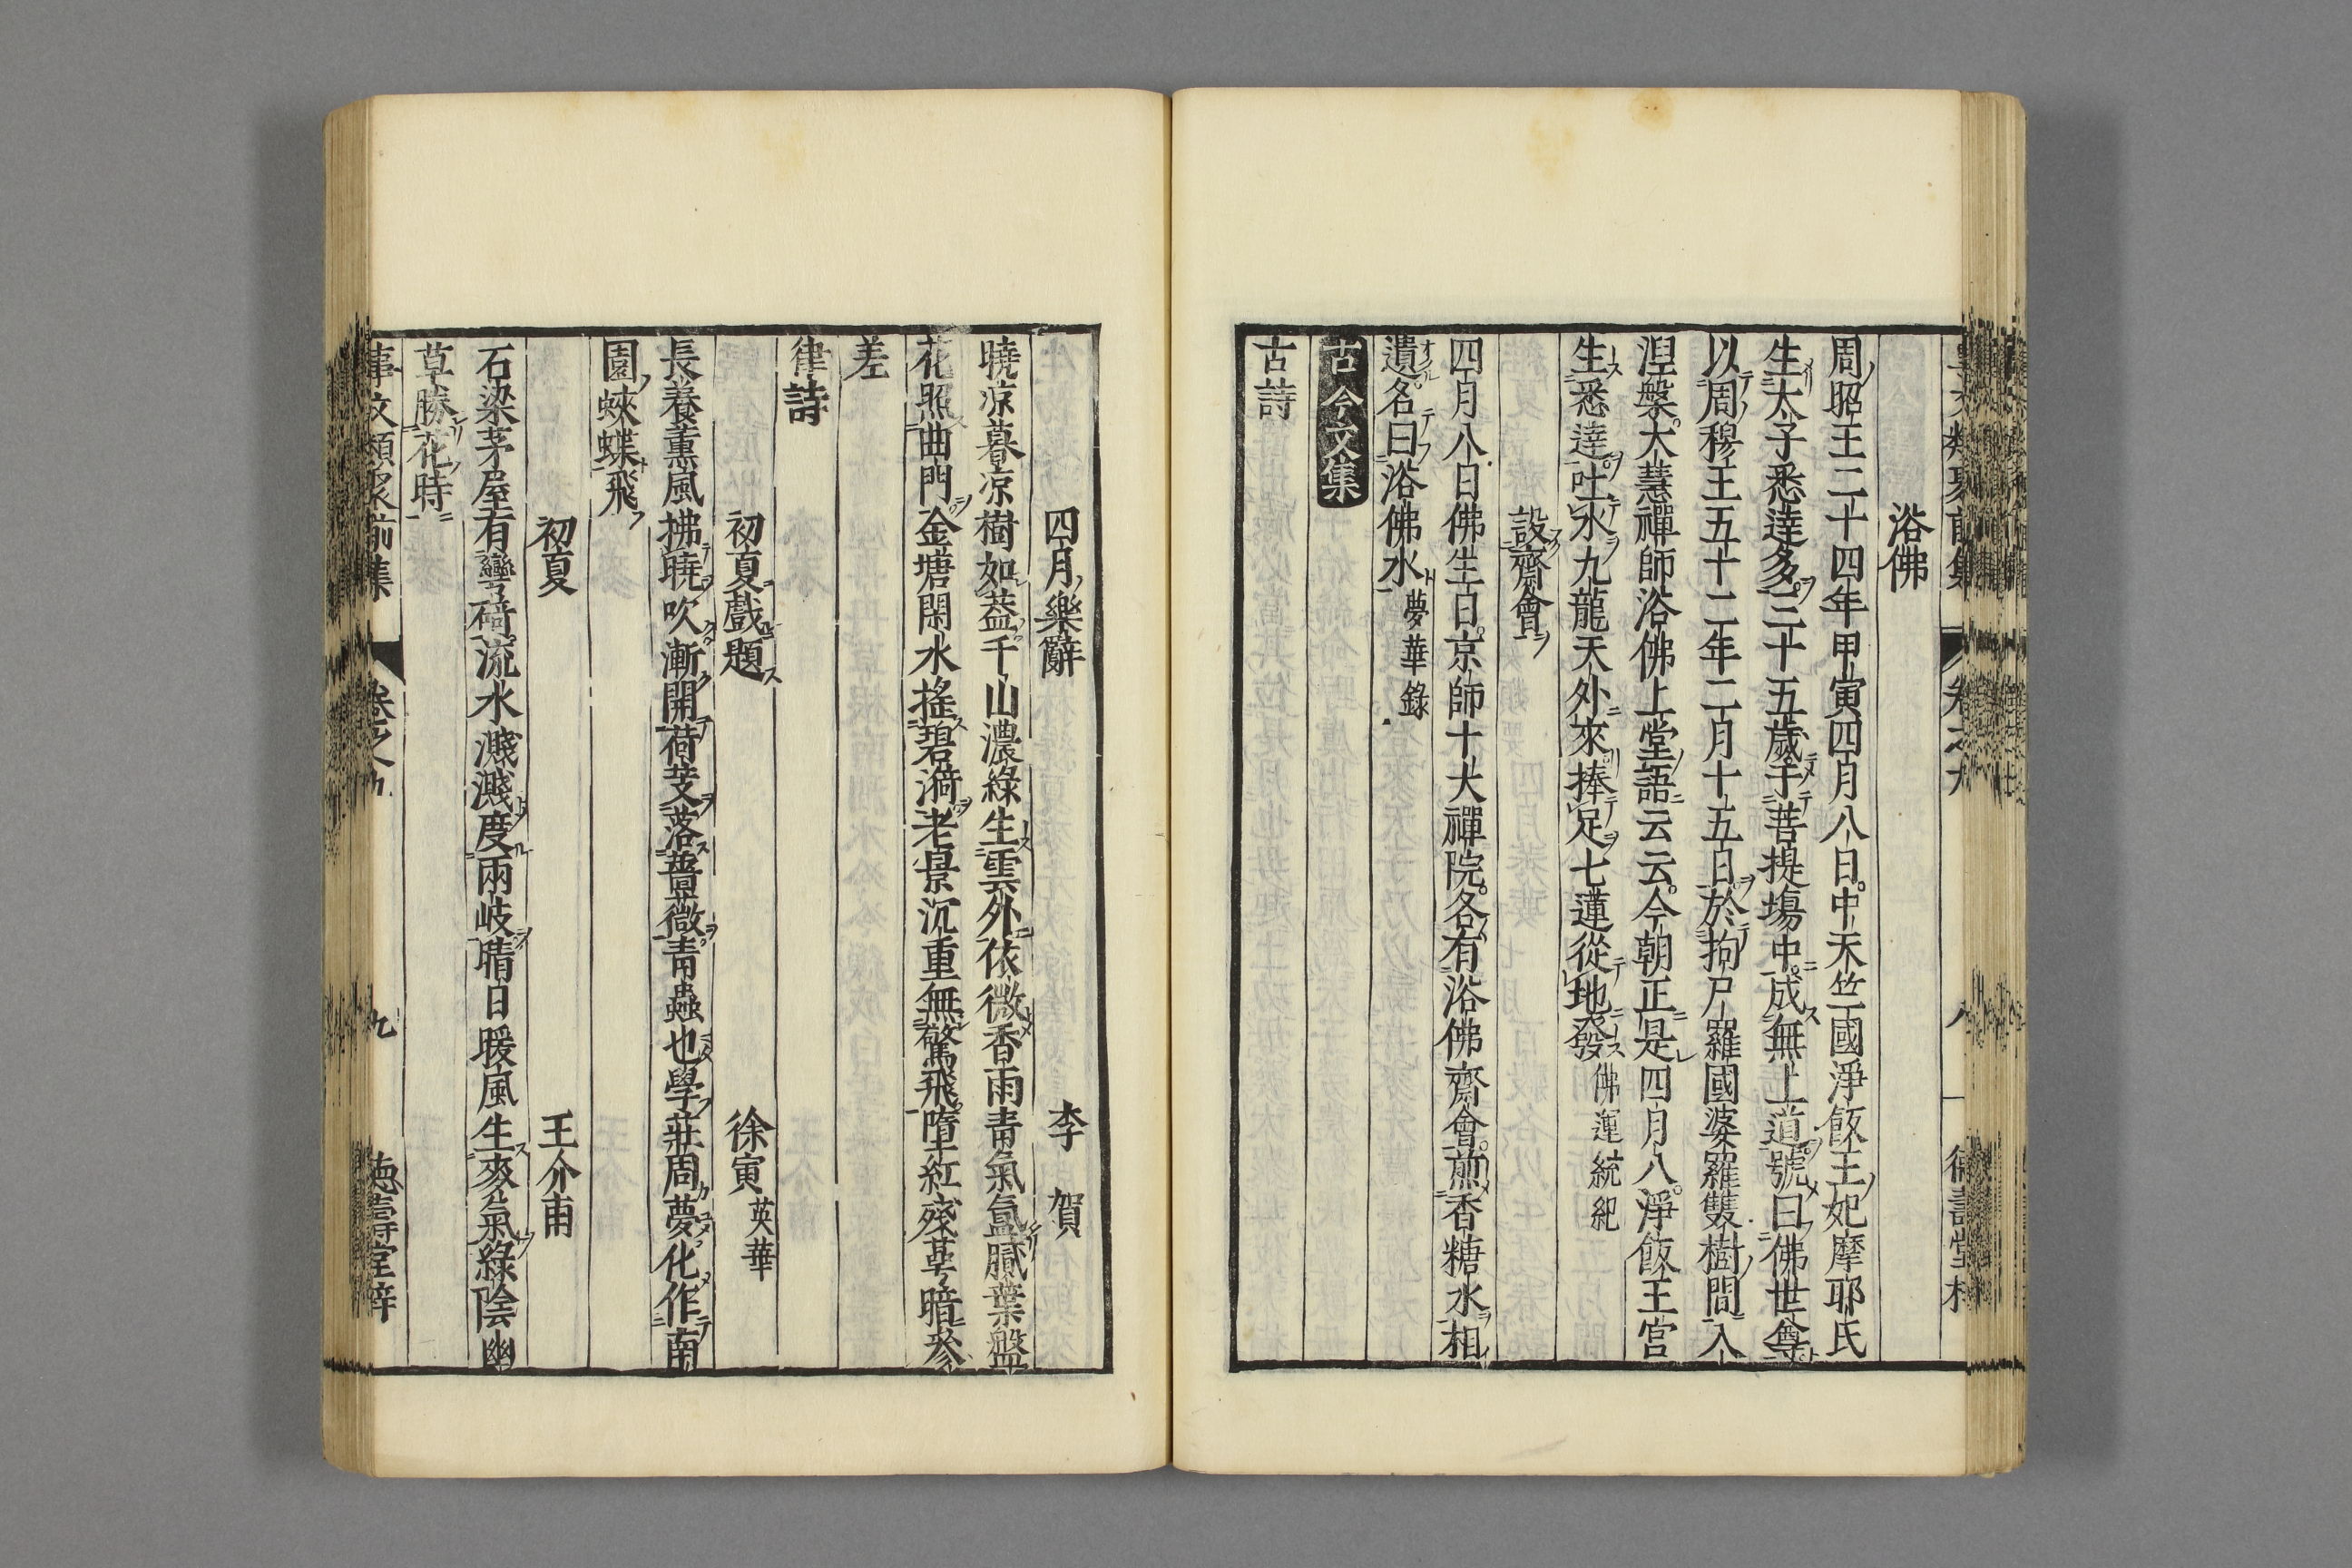 浴佛
周昭王二十四年甲寅四月八日中天竺國淨飯王妃摩耶氏
生太子悉達多三十五歲于菩提場中成無上道號曰佛世尊
以周穆王五十二年二月十五日於拘尸羅國婆羅雙樹間入
涅槃大慧禪師浴佛上堂語云云今朝正是四月八淨飯王宮
生悉達吐水九龍天外來捧足七蓮從地發 佛運統紀
設齋會
四月八日佛生日京師十大禪院各有浴佛齋會煎香糖水相
遺名曰浴佛水 夢華錄
古今文集
古詩
四月樂辭 李賀
曉凉暮凉樹如蓋千山濃綠生雲外依微香雨青氣氳膩葉蟠
花照曲門金塘閑水搖碧漪老景沉重無驚飛墮紅殘萼暗參
差
律詩
初夏戲題 徐寅 英華
長養薫風拂曉吹漸開荷芰落薔薇青蟲也學莊周夢化作南
園蛺蝶飛
初夏 王介甫
石梁茅屋有彎碕流水濺濺度兩岐晴日暖風生麥氣綠陰幽
草勝花時
事文類聚前集 卷之九 九 德壽堂梓